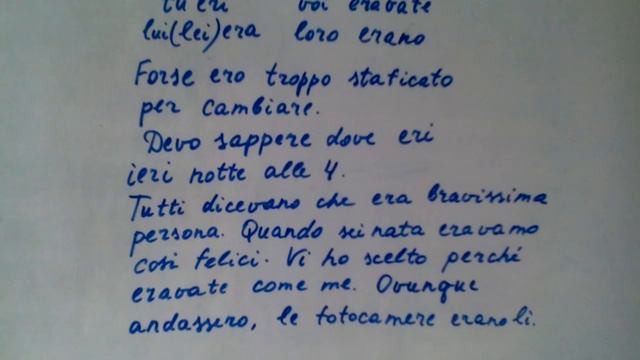 tu eri voi eravate
lui(lei)era loro erano
Forse ero troppo staficato
per cambiare.
Devo sappere dove eri
ieri notte alle 4.
Tutti dicevano che era bravissima
persona. Quando sei nata eravamo
così felici. Vi ho scelto perché
eravate come me. Ovunque
andassero, le fotocamere erano lì.